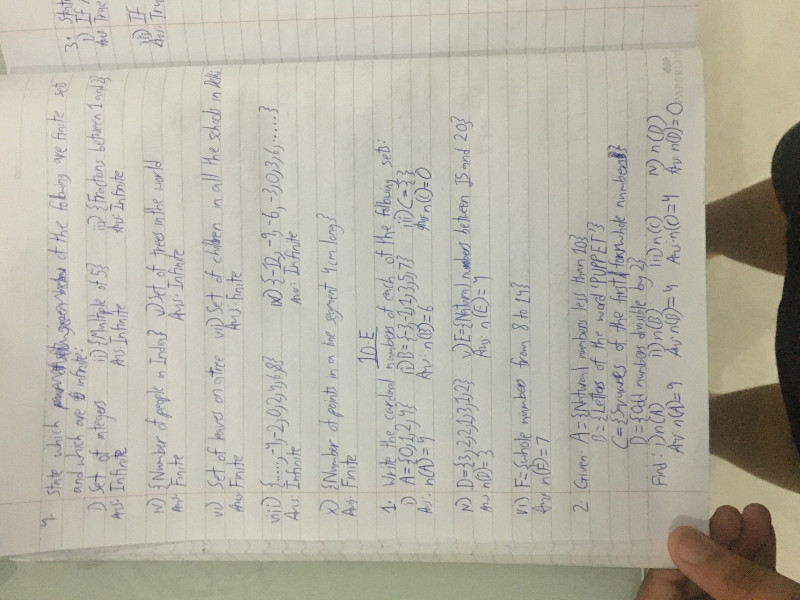 4. State which of the following are finite set
and which are infinite:
i) Set of integers ii) {Multiple of 5} iii) {Fractions between 1 and 2}
Ans: Infinite Ans: Infinite Ans: Infinite
iv) {Number of people in India} v) Set of trees in the world
Ans: Finite Ans: Infinite
vi) Set of leaves on a tree vii) Set of children in all the schools in Delhi
Ans: Finite Ans: Finite
viii) {....., -4, -2, 0, 2, 4, 6, 8} ix) {-12, -9, -6, -3, 0, 3, 6, ......}
Ans: Infinite Ans: Infinite
x) {Number of points in a line segment 4 cm long}
Ans: Finite
10.E
1. Write the cardinal numbers of each of the following sets:
i) A={0,1,2,4} ii) B={-3,-1,1,3,5,7} iii) C={ }
As: n(A)=4 Ans: n(B)=6 Ans n(C)=0
iv) D={3,2,2,1,3,1,2} v) E={Natural numbers between 15 and 20}
Ans n(D)=3 Ans: n(E)=4
vi) F={whole numbers from 8 to 14}
Ans n(F)=7
2. Given: A={Natural numbers less than 10}
B={Letters of the word 'PUPPET'}
C={Squares of the first four whole numbers}
D={Odd numbers divisible by 2}
Find: i) n(A) ii) n(B) iii) n(C) iv) n(D)
Ans n(A)=9 Ans n(B)=4 Ans n(C)=4 Ans n(D)=0
3. State
i) If
Ans True
ii) If
Ans: True